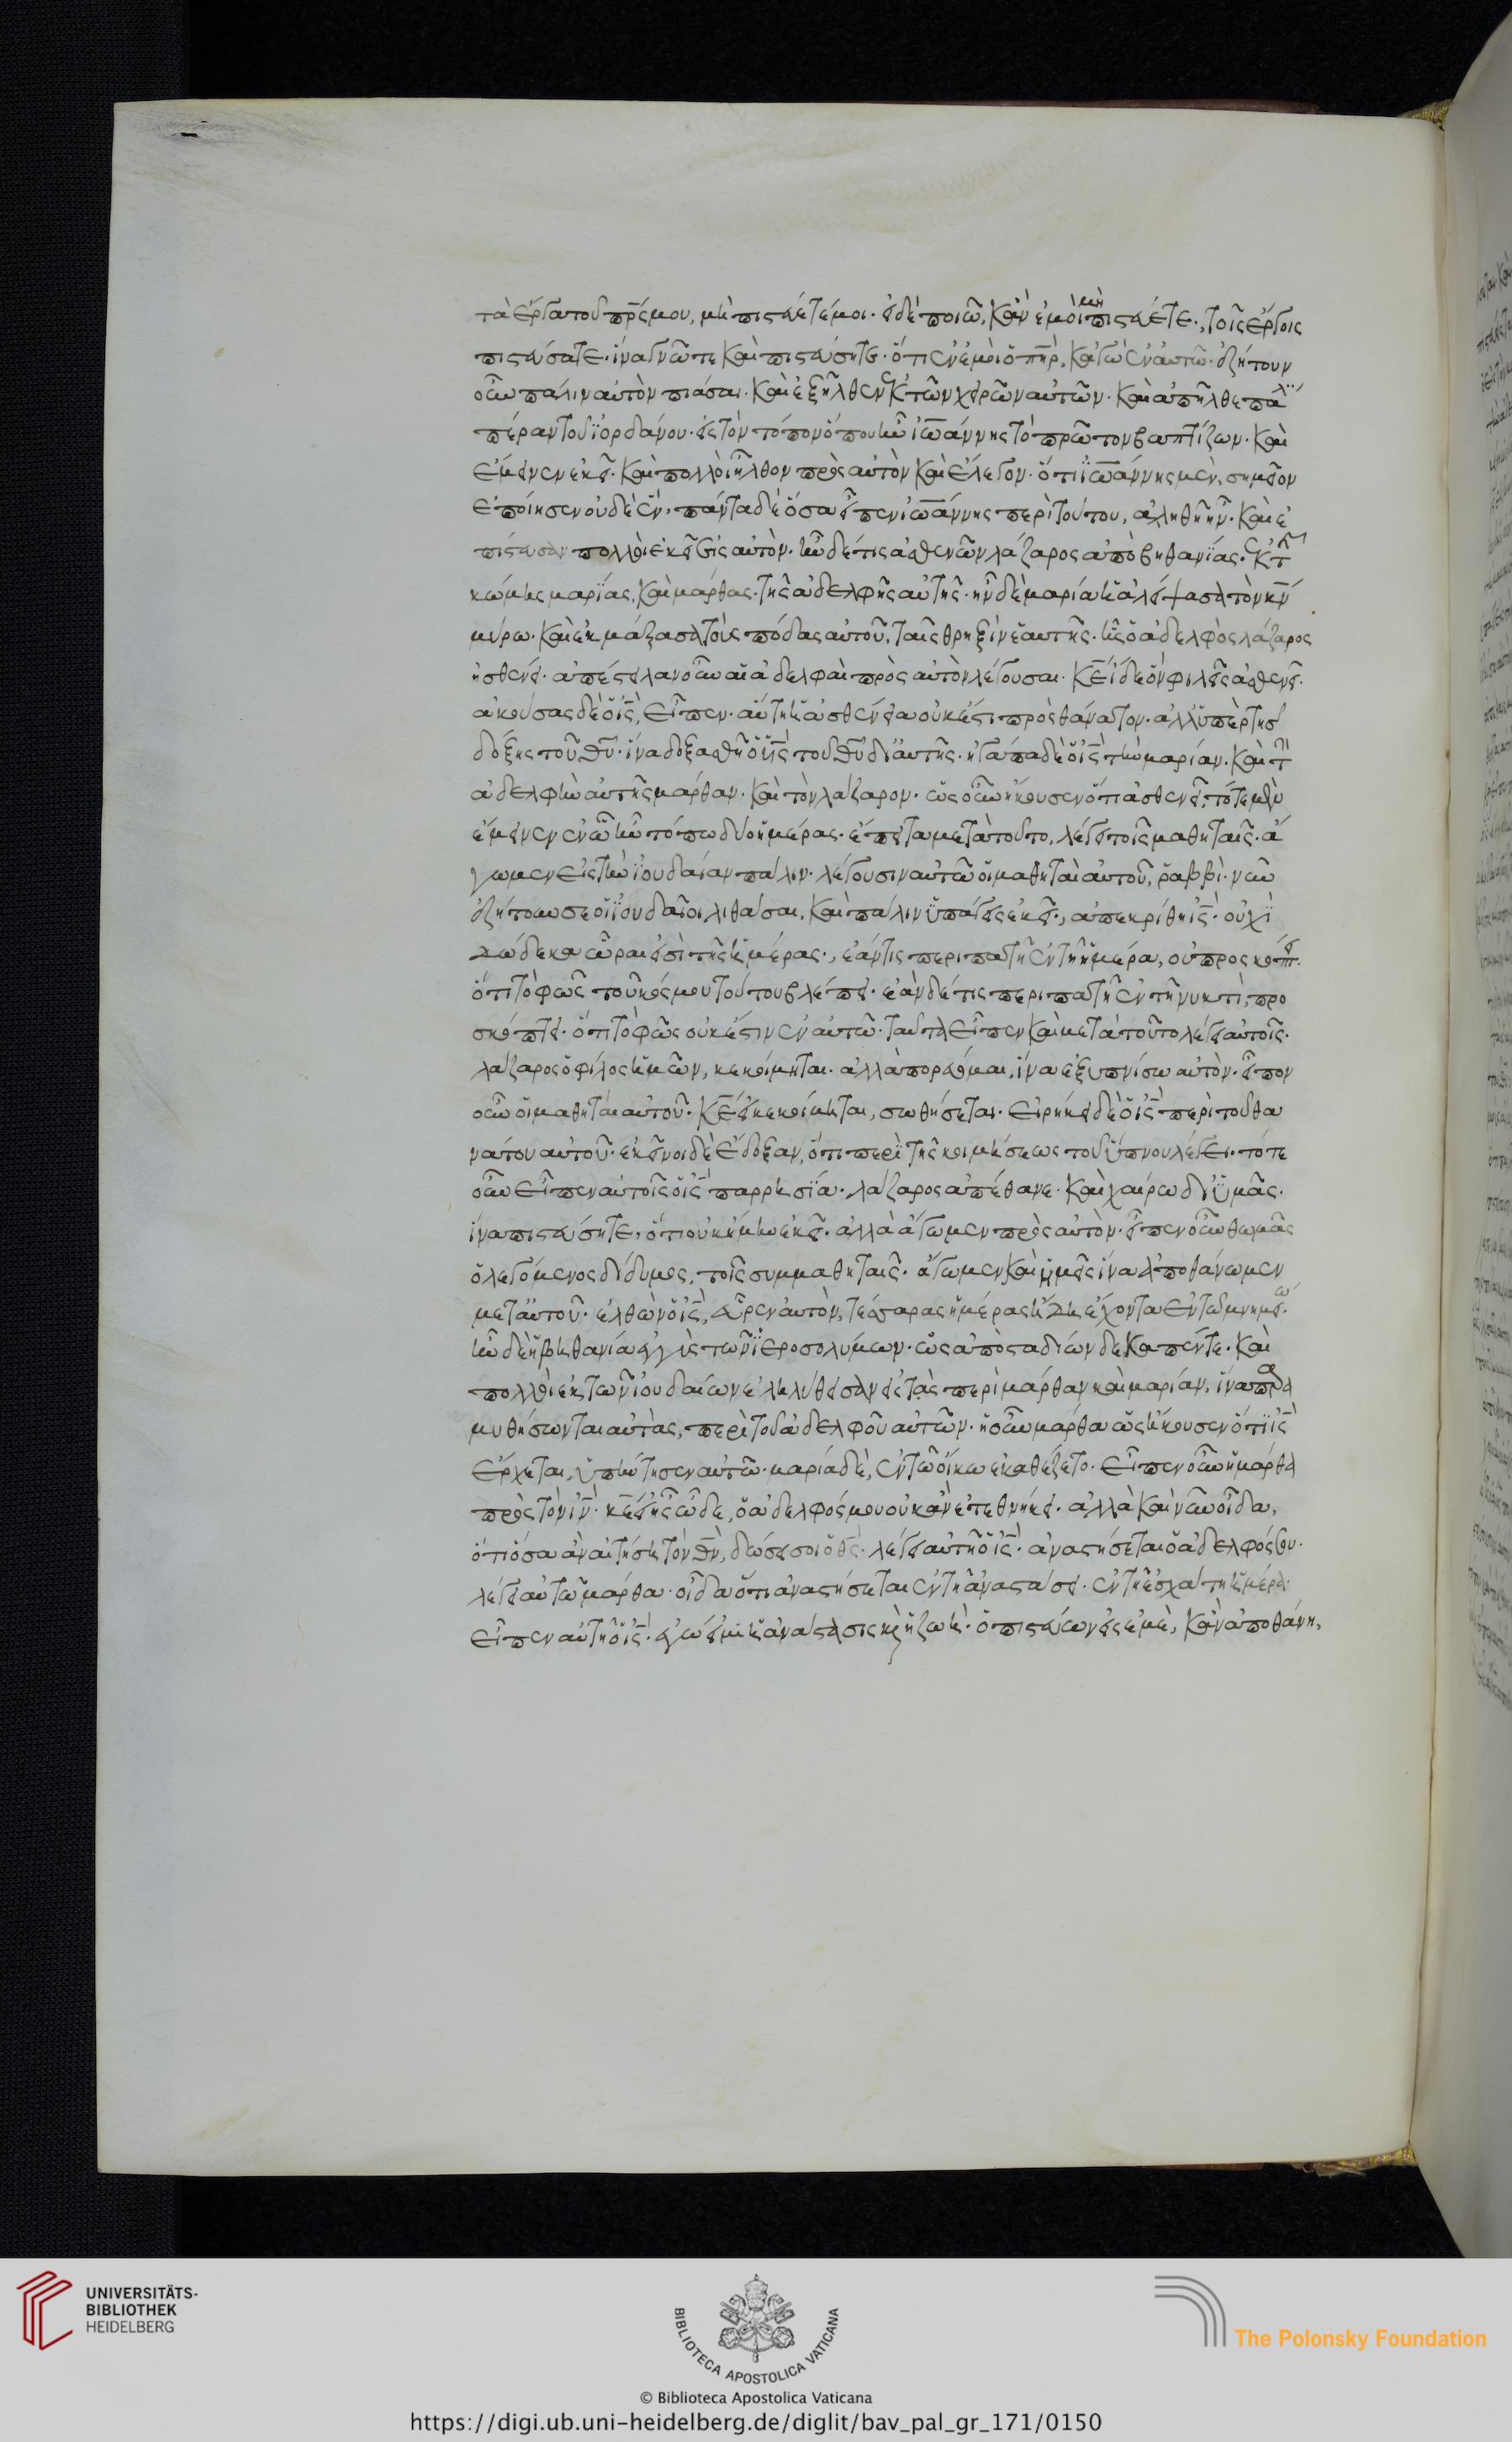 τὰ ἔργα τοῦ πρς μου, μὴ πιστεύετέ μοι· εἰ δὲ ποιῶ, κἂν ἐμοὶ μὴ πιστεύετε, τοῖς ἔργοις
πιστεύσατε· ἵνα γνῶτε καὶ πιστεύσητε· ὅτι ἐν ἐμοὶ ὁ πηρ, κἀγὼ ἐν αὐτῶ· ἐζήτουν
οὖν πάλιν αὐτὸν πιάσαι· καὶ ἐξῆλθεν ἐκ τῶν χειρῶν αὐτῶν· καὶ ἀπῆλθε πάλι
πέραν τοῦ ϊορδάνου· εἰς τὸν τόπον ὅπου ἦν ἰωάννης τὸ πρῶτον βαπτίζων· καὶ
ἔμεινεν ἐκεῖ· καὶ πολλοὶ ἦλθον πρὸς αὐτὸν καὶ ἔλεγον· ὅτι ϊωάννης μὲν, σημεῖον
ἐποίησεν οὐδὲ ἕν· πάντα δὲ ὅσα εἶπεν ἰωάννης περὶ τούτου, ἀληθῆ ἦν· καὶ ἐ
πίστευσαν πολλοὶ ἐκεῖ εἰς αὐτόν· ἦν δέ τις ἀσθενῶν λάζαρος ἀπὸ βηθανίας· ἐκ τῆς
κώμης μαρίας, καὶ μάρθας· τῆς ἀδελφῆς αὐτῆς· ἦν δὲ μαρία ἡ ἀλείψασα τὸν κν
μύρω· καὶ ἐκμάξασα τοὺς πόδας αὐτοῦ, ταῖς θρηξὶν ἑαυτῆς· ἧς ὁ ἀδελφὸς λάζαρος
ἠσθένει· ἀπέστειλαν οὖν αἱ ἀδελφαὶ πρὸς αὐτὸν λέγουσαι· κε ἴδε ὃν φιλεῖς ἀσθενεῖ·
ἀκούσας δὲ ὁ ις, εἶπεν· αὕτη ἡ ἀσθένεια οὐκ ἔστι πρὸς θάνατον· ἀλλ' ὑπὲρ τῆς
δόξης τοῦ θυ· ἵνα δοξασθῆ ὁ υς τοῦ θυ δι' αὐτῆς· ἠγάπα δὲ ὁ ις τὴν μαρίαν· καὶ τὴν
ἀδελφὴν αὐτῆς μάρθαν· καὶ τὸν λάζαρον· ὡς οὖν ἤκουσεν ὅτι ἀσθενεῖ· τότε μὲν
ἔμεινεν ἐν ὧ ἦν τόπω δύο ἡμέρας· ἔπειτα μετὰ τοῦτο, λέγει τοῖς μαθηταῖς· ἄ
γωμεν εἰς τὴν ϊουδαίαν πάλιν· λέγουσιν αὐτῶ οἱ μαθηταὶ αὐτοῦ, ῥαββὶ· νῦν
ἐζήτουν σε οἱ ϊουδαῖοι λιθάσαι, καὶ πάλιν ὑπάγεις ἐκεῖ·, ἀπεκρίθη ις· οὐχὶ
δώδεκα ὧραι εἰσὶ τῆς ἡμέρας·, ἐάν τις περιπατῆ ἐν τῆ ἡμέρα, οὐ προσκόπτει·
ὅτι τὸ φῶς τοῦ κόσμου τούτου βλέπει· ἐὰν δέ τις περιπατῆ ἐν τῆ νυκτὶ, προ
σκόπτει· ὅτι τὸ φῶς οὐκ ἔστιν ἐν αὐτῶ· ταῦτα εἶπεν καὶ μετὰ τοῦτο λέγει αὐτοῖς·
λάζαρος ὁ φίλος ἡμῶν, κεκοίμηται· ἀλλὰ πορεύομαι, ἵνα ἐξυπνίσω αὐτόν· εἶπον
οὖν οἱ μαθηταὶ αὐτοῦ· κε εἰ κεκοίμηται, σωθήσεται· εἰρήκει δὲ ὁ ις περὶ τοῦ θα
νάτου αὐτοῦ· ἐκεῖνοι δὲ ἔδοξαν, ὅτι περὶ τῆς κοιμήσεως τοῦ ὕπνου λέγει· τότε
οὖν εἶπεν αὐτοῖς ὁ ις παρρησία· λάζαρος ἀπέθανε· καὶ χαίρω δι' ϋμᾶς·
ἵνα πιστεύσητε, ὅτι οὐκ ἤμην ἐκεῖ· ἀλλὰ ἄγωμεν πρὸς αὐτόν· εἶπεν οὖν θωμᾶς
ὁ λεγόμενος δίδυμος, τοῖς συμμαθηταῖς· ἄγωμεν καὶ ἡμεῖς ἵνα ἀποθάνωμεν
μετ' αὐτοῦ· ἐλθὼν ὁ ις, εὗρεν αὐτὸν, τέσσαρας ἡμέρας ἤδη ἔχοντα ἐν τῶ μνημείω·
ἦν δὲ ἡ βηθανία ἐγγὺς τῶν ϊεροσολύμων· ὡς ἀπὸ σταδίων δεκαπέντε· καὶ
πολλοὶ ἐκ τῶν ϊουδαίων ἐληλύθεισαν εἰς τὰς περὶ μάρθαν καὶ μαρίαν, ἵνα παρα
μυθήσωνται αὐτὰς, περὶ τοῦ ἀδελφοῦ αὐτῶν· ἡ οὖν μάρθα ὡς ἤκουσεν ὅτι ϊς
ἔρχεται, ὑπήντησεν αὐτῶ· μαρία δὲ, ἐν τῶ οἴκω ἐκαθέζετο· εἶπεν οὖν ἡ μάρθα
πρὸς τὸν ιν· κε εἰ ἦς ὧδε, ὁ ἀδελφός μου οὐκ ἂν ἐτεθνήκει· ἀλλὰ καὶ νῦν οἶδα,
ὅτι ὅσα ἂν αἰτήση τὸν θν, δώσει σοι ὁ θς· λέγει αὐτῆ ὁ ις· ἀναστήσεται ὁ ἀδελφός σου·
λέγει αὐτῶ μάρθα· οἶδα ὅτι ἀναστήσεται ἐν τῆ ἀναστάσει· ἐν τῆ ἐσχάτη ἡμέρα·
εἶπεν αὐτῆ ὁ ις· ἐγώ εἰμι ἡ ἀνάστασις καὶ ἡ ζωή· ὁ πιστεύων εἰς ἐμὲ, κἂν ἀποθάνη,
UNIVERSITÄTS-
BIBLIOTHEK
HEIDELBERG
BIBLIOTECA APOSTOLICA VATICANA
The Polonsky Foundation
© Biblioteca Apostolica Vaticana
https://digi.ub.uni-heidelberg.de/diglit/bav_pal_gr_171/0150